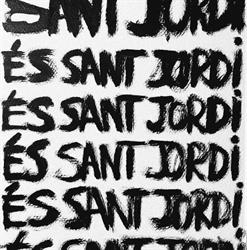 SANT JORDI
ÉS SANT JORDI
ÉS SANT JORDI
ÉS SANT JORDI
ÉS SANT JORDI
ÉS SANT JORDI